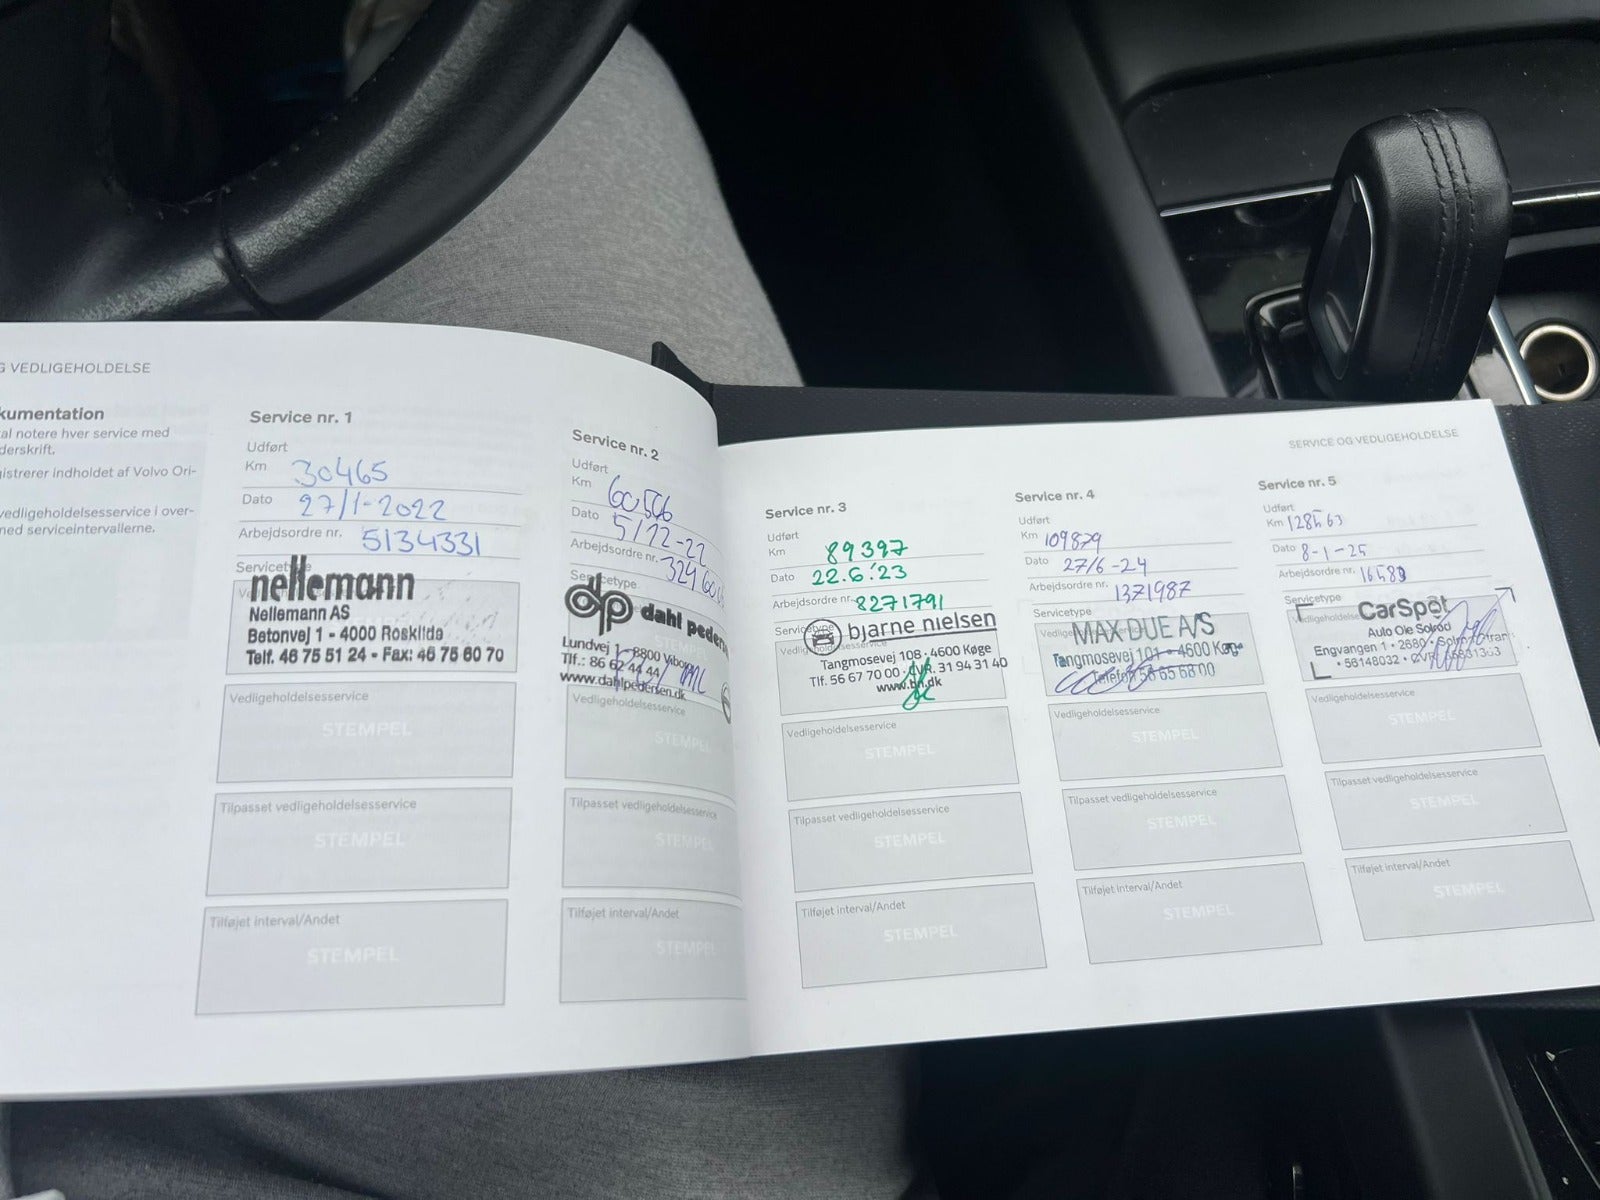 G VEDLIGEHOLDELSE
kumentation
al notere hver service med
derskrift.
gistrerer indholdet af Volvo Ori-
vedligeholdelsesservice i over-
med serviceintervallerne.
Service nr. 1
Udført
Km 30465
Dato 27/1-2022
Arbejdsordre nr. 5134331
Servicetype
nellemann
Nellemann AS
Betonvej 1 - 4000 Roskilde
Telf. 46 75 51 24 - Fax: 46 75 60 70
Vedligeholdelsesservice
STEMPEL
Tilpasset vedligeholdelsesservice
STEMPEL
Tilføjet interval/Andet
STEMPEL
Service nr. 2
Udført
Km
Dato 5/12-22
Arbejdsordre nr.
Servicetype
dp dahl peders
Lundvej 8800 Viborg
Tlf.: 86 62 44 44
www.dahlpedersen.dk
Vedligeholdelsesservice
STEMPEL
Tilpasset vedligeholdelsesservice
STEMPEL
Tilføjet interval/Andet
STEMPEL
SERVICE OG VEDLIGEHOLDELSE
Service nr. 3
Udført
Km 89397
Dato 22.6.'23
Arbejdsordre nr. 8271791
Servicetype
bjarne nielsen
Tangmosevej 108 · 4600 Køge
Tlf. 56 67 70 00 · CVR. 31 94 31 40
www.bn.dk
Vedligeholdelsesservice
STEMPEL
Tilpasset vedligeholdelsesservice
STEMPEL
Tilføjet interval/Andet
STEMPEL
Service nr. 4
Udført
Km 109879
Dato 27/6-24
Arbejdsordre nr. 1371987
Servicetype
MAX DUE A/S
Tangmosevej 101 - 4600 Køge
Telefon 56 65 68 00
Vedligeholdelsesservice
STEMPEL
Tilpasset vedligeholdelsesservice
STEMPEL
Tilføjet interval/Andet
STEMPEL
Service nr. 5
Udført
Km
Dato 8-1-25
Arbejdsordre nr.
Servicetype
CarSpot
Auto Ole Solrød
Engvangen 1 · 2680
· 56148032 · CVR
Vedligeholdelsesservice
STEMPEL
Tilpasset vedligeholdelsesservice
STEMPEL
Tilføjet interval/Andet
STEMPEL